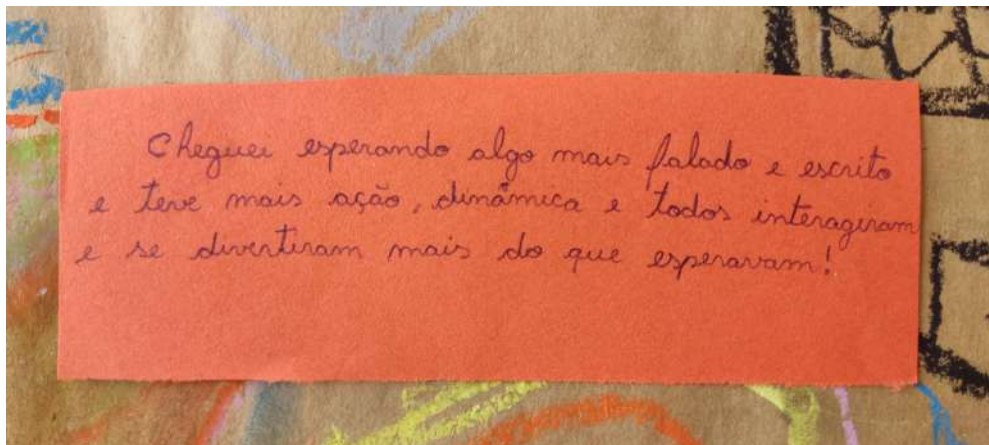 Cheguei esperando algo mais falado e escrito
e teve mais ação, dinâmica e todos interagiram
e se divertiram mais do que esperavam!